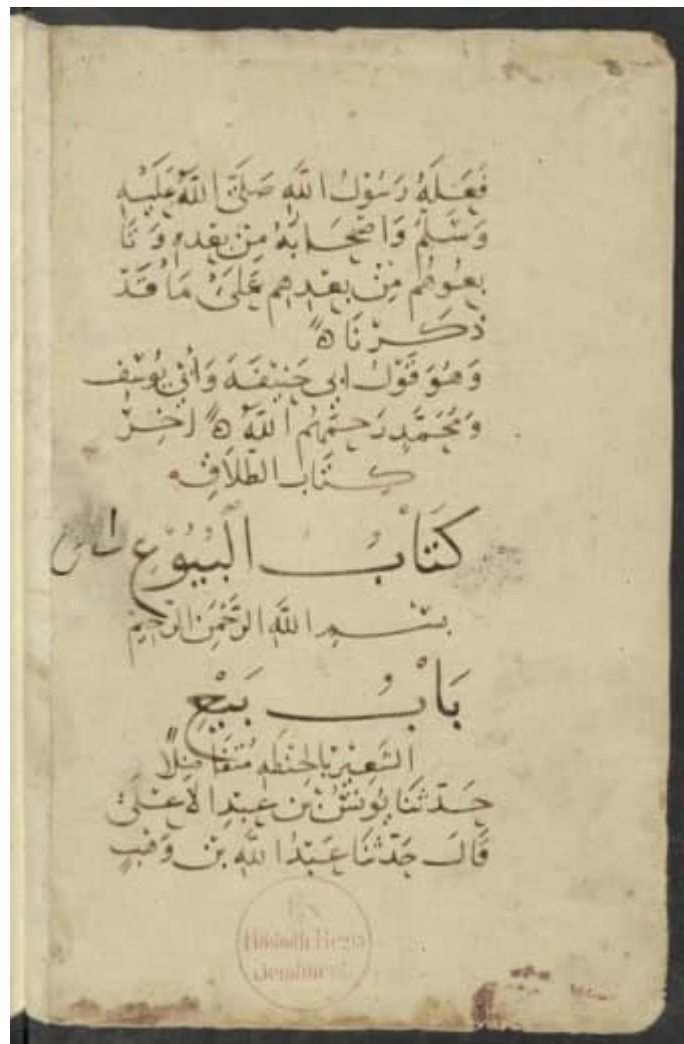 فَعَلَهُ رَسُوْلُ اللَّهِ صَلَّى اللَّهُ عَلَيْهِ
وَسَلَّمْ وَاصْحَابُهُ مِنْ بَعْدِهِ وَتَا
بِعُوهُمْ مِنْ بَعْدِهِم عَلَىَ مَا قَدْ
ذَكَرْنَا ه
وَهُوَ قَوْلُ ابى حَنِيْفَةَ وَأبى يُوسْف
وَمُحَمَّدٍ رَحِمَهُم اللَّهُ ه اخِرُ
كِتَابِ الطَّلَاقِ
كَتَابُ الْبُيُوْعِ
بِسْمِ اللَّهِ الرَّحْمَنِ الرَّحِيْمِ
بَابُ بَيْعِ
الشَعِيْرِ بالحِنطَهِ مُتَفَاضِلاً
حَدثَنَا يُونسُ بْن عَبْدِ الاَعْلَى
قَالَ حَدَّثنَا عَبْدُ اللَّهِ بْن وَهْبٍ
Biblioth Regia